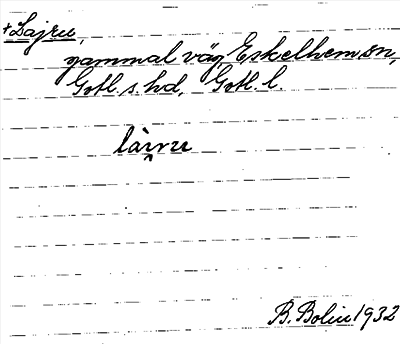 +Lajru,
gammal väg, Eskelhem sn,
Gotl. s. hd, Gotl. l.
lài̯ru
B. Bolin 1932